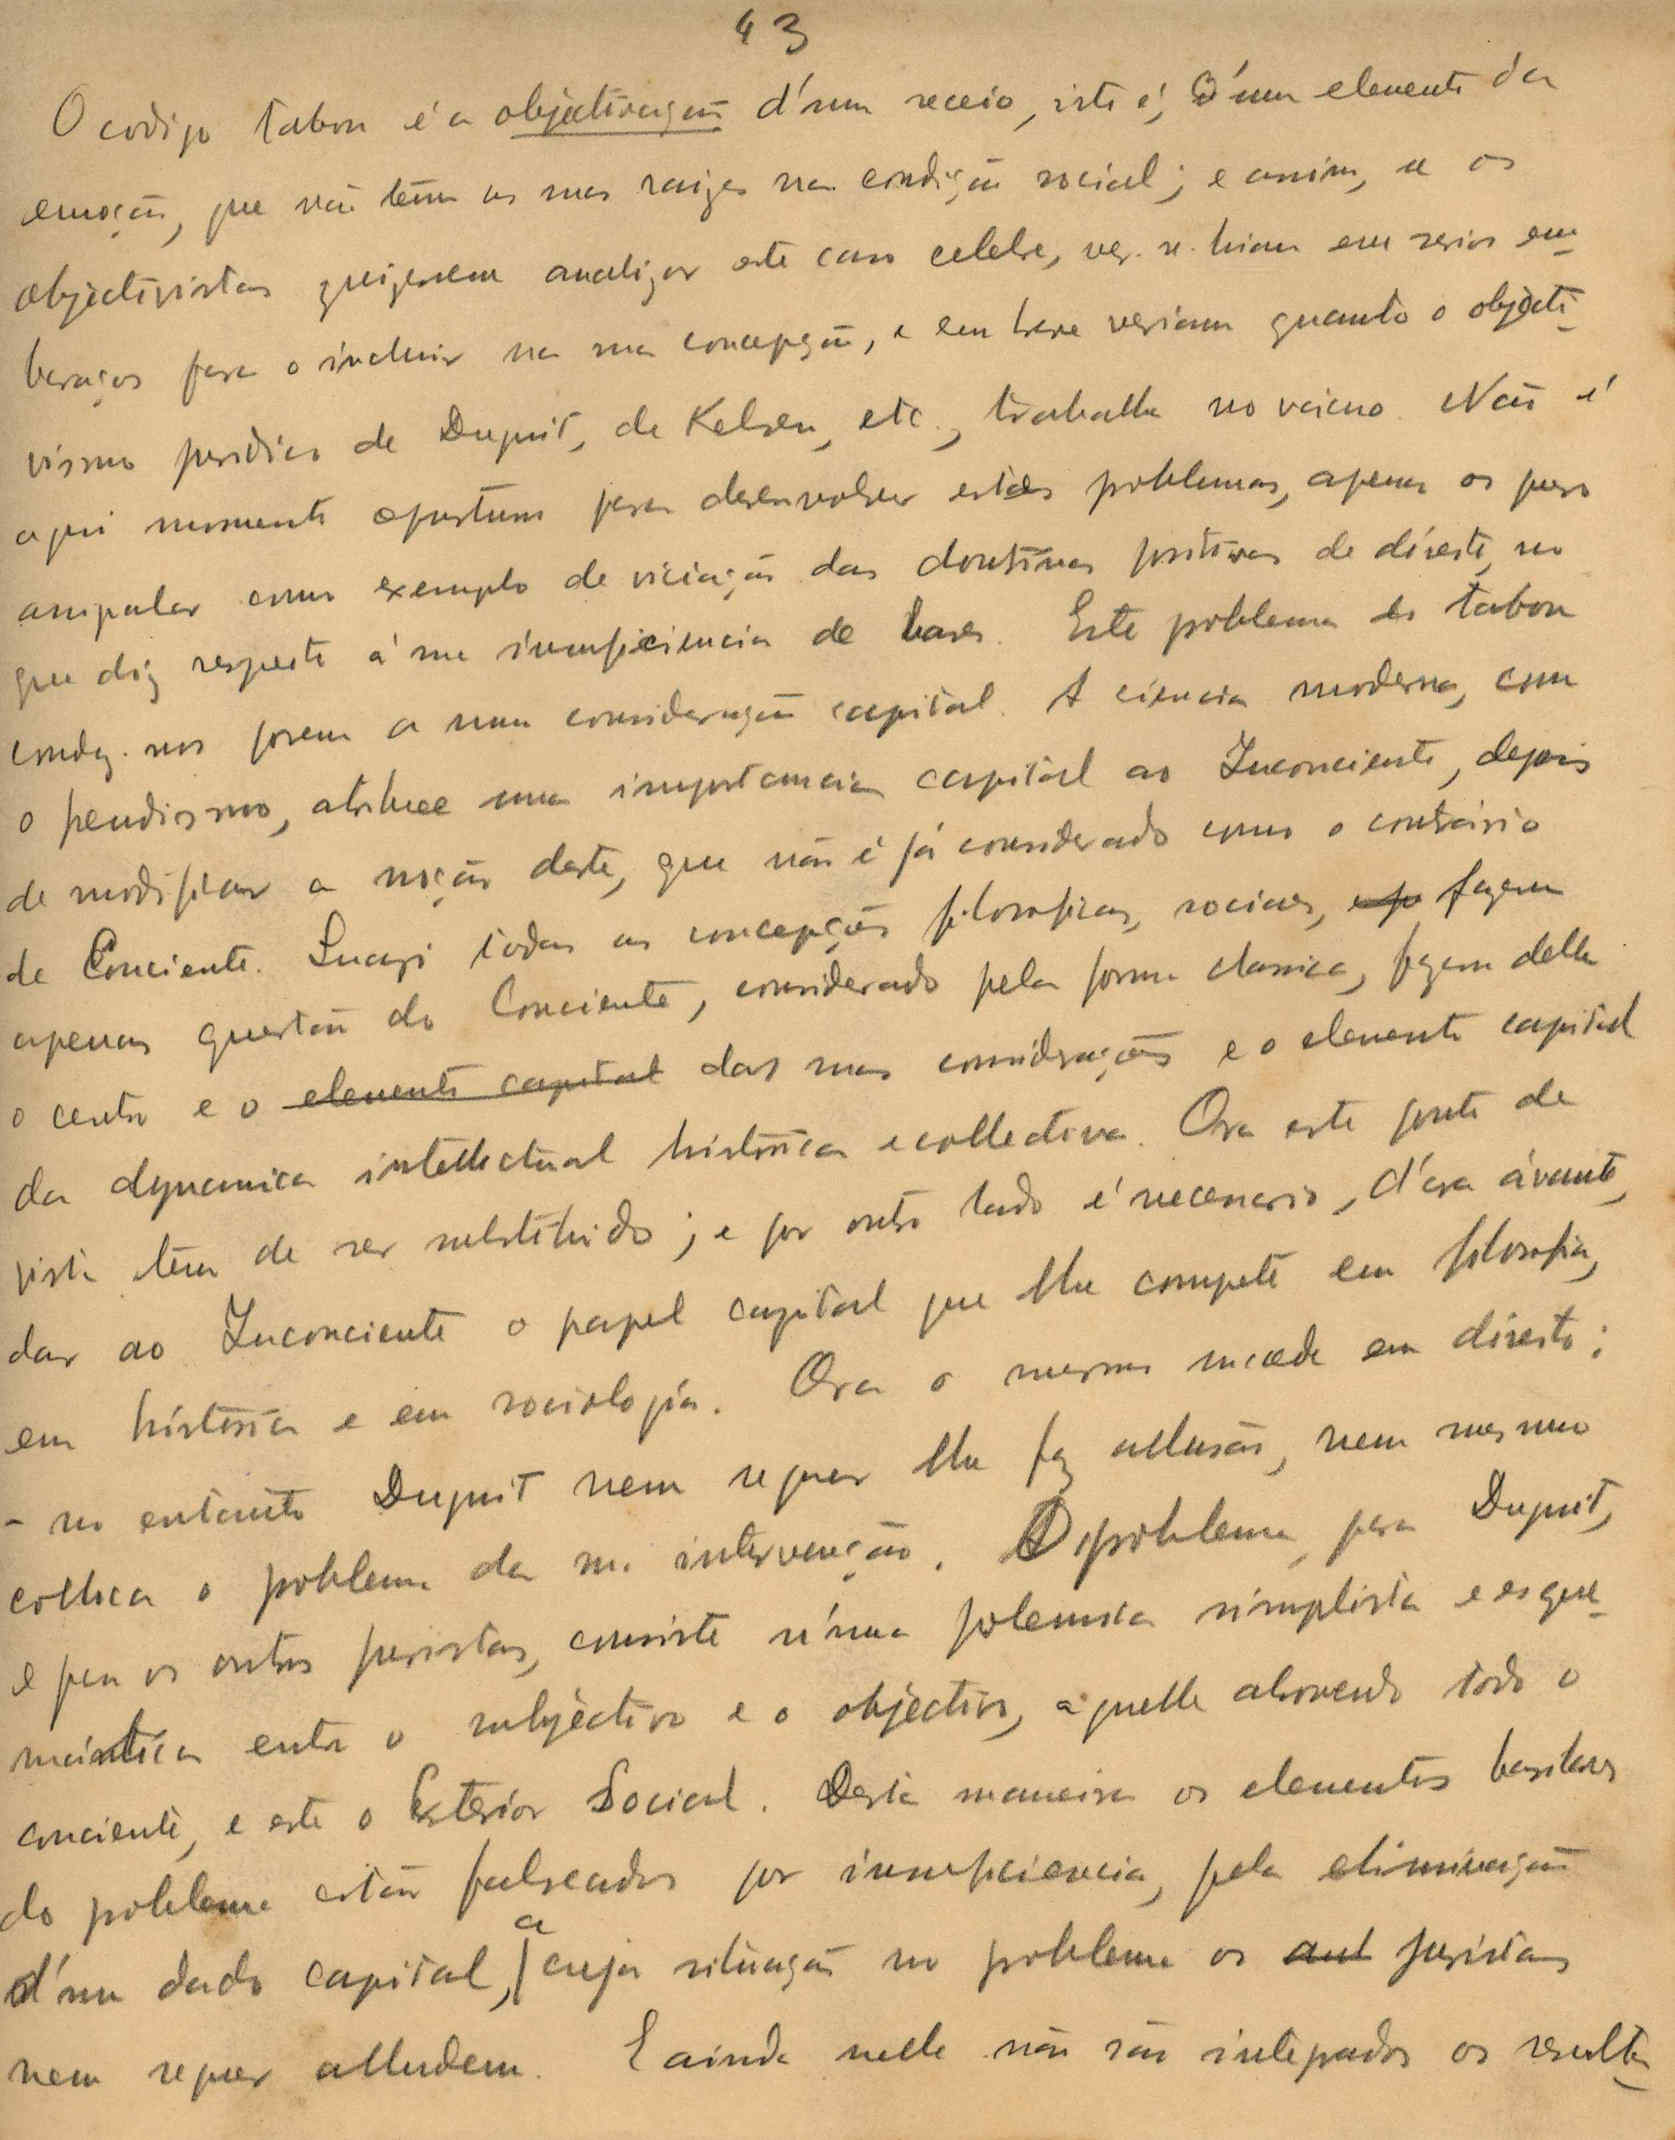 43
O codigo tabou é a objectivação d'um receio, isto é, d'um elemento da
emoção, que não têm as suas raizes na condição social; e assim, se os
objectivistas quizessem analizar este caso celebre, ver-se-hiam em serios em-
baraços para o incluir na sua concepção, e em breve veriam quanto o objecti-
vismo juridico de Duguit, de Kelsen, etc., trabalha no vacuo. Não é
aqui momento oportuno para desenvolver estes problemas, apenas os quero
assinalar como exemplo de viciação das doutrinas positivas de direito, no
que diz respeito á sua insuficiencia de bases. Este problema do tabou
conduz-nos porem a uma consideração capital. A ciencia moderna, com
o freudismo, atribuee uma importancia capital ao Inconciente, depois
de modificar a noção deste, que não é já considerado como o contrário
de Conciente. Quazi todas as concepções filosoficas, sociaes, fazem
apenas questão do Conciente, considerado pela forma classica, fazem delle
o centro e o elemento capital das suas considerações e o elemento capital
da dynamica intellectual historica e collectiva. Ora este ponto de
vista tem de ser substituido; e por outro lado é necessario, d'ora ávante,
dar ao Inconciente o papel capital que lhe compete em filosofia,
em historia e em sociologia. Ora o mesmo sucede em direito;
- no entanto Duguit nem sequer lhe faz allusão, nem mesmo
colloca o problema da sua intervenção. O problema, para Duguit,
e para os outros juristas, consiste n'uma polemica simplista e esque-
mática entre o subjectivo e o objectivo, aquelle absorvendo todo o
conciente, e este o Exterior Social. Desta maneira os elementos basilares
do problema estão falseados por insuficiencia, pela eliminação
d'um dado capital, a cuja situação no problema os aut juristas
nem sequer alludem. E ainda nelle não são integrados os resulta-